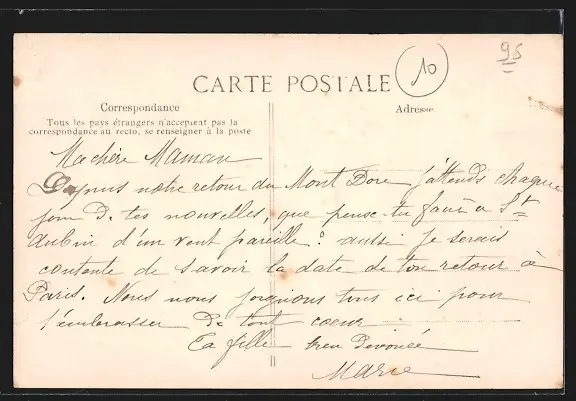 95
10
CARTE POSTALE
Correspondance
Tous les pays étrangers n'acceptent pas la
correspondance au recto, se renseigner à la poste
Adresse
Ma chère Maman
Depuis notre retour du Mont Dore j'attends chaque
jour De tes nouvelles, que peux-tu faire a St
Aubin d'un vent pareille? aussi je serais
contente de savoir la date de ton retour à
Paris. Nous nous joignons tous ici pour
t'embrasser De tout coeur
Ta fille bien Devouée
Marie